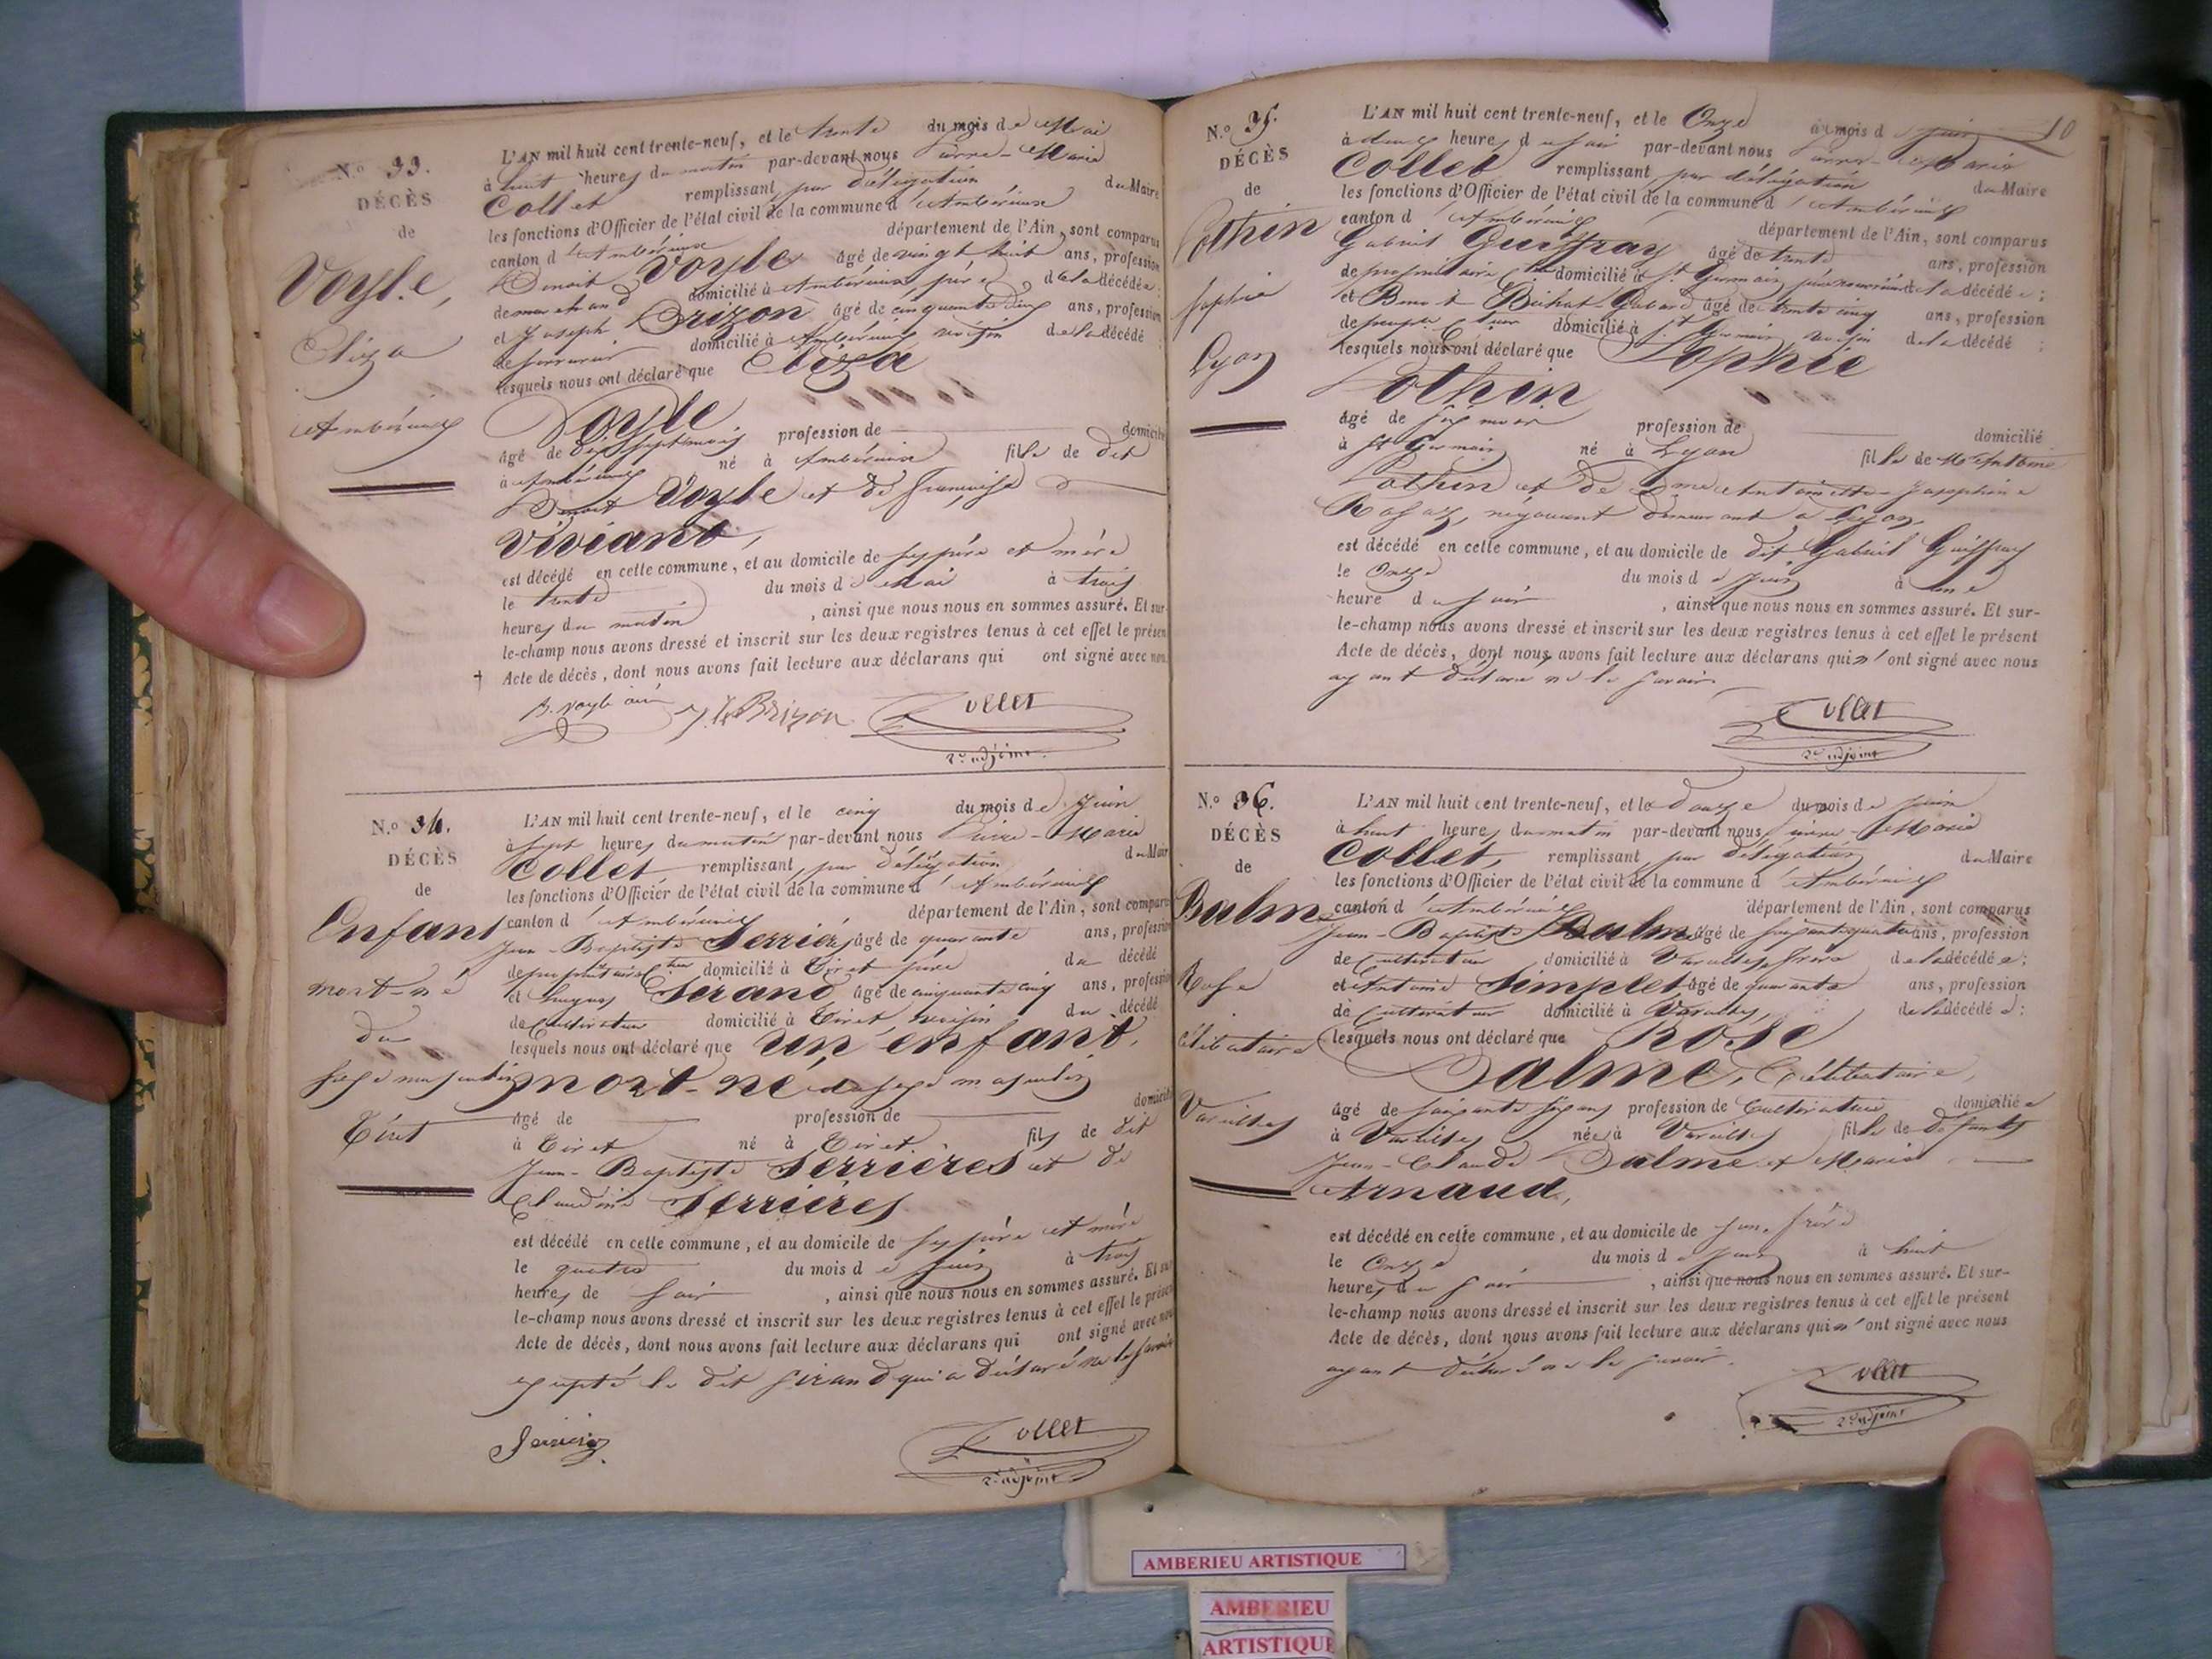 N.º 33.
DÉCÈS
de
Voyle,
Eliza
Ambérieux
L'AN mil huit cent trente-neuf, et le trente du mois de Mai
à huit heures du matin par-devant nous Pierre-Marie
Collet remplissant par délégation du Maire
les fonctions d'Officier de l'état civil de la commune d'Ambérieux
canton d'Ambérieux département de l'Ain, sont comparus
Benoit Voyle âgé de vingt huit ans, profession
de marchand domicilié à Ambérieux, père de la décédée;
et Joseph Brizon âgé de cinquante deux ans, profession
de serrurier domicilié à Ambérieux voisin de la décédé
lesquels nous ont déclaré que Eliza
Voyle
âgé de dix sept mois profession de domicilié
à Ambérieux né à Ambérieux fille de dit
Benoit Voyle et de Françoise
Viviant,
est décédé en cette commune, et au domicile de ses père et mère
le trente du mois de mai à trois
heures du matin, ainsi que nous nous en sommes assuré. Et sur-
le-champ nous avons dressé et inscrit sur les deux registres tenus à cet effet le présent
Acte de décès, dont nous avons fait lecture aux déclarans qui ont signé avec nous
B. Voyle ainé J. Brizon Collet
2e adjoint
N.º 34.
DÉCÈS
de
Enfant
mort-né
du
sexe masculin
Tiret
L'AN mil huit cent trente-neuf, et le cinq du mois de Juin
à sept heures du matin par-devant nous Pierre-Marie
Collet remplissant par délégation du Maire
les fonctions d'Officier de l'état civil de la commune d'Ambérieux
canton d'Ambérieux département de l'Ain, sont comparus
Jean-Baptiste Serrières âgé de quarante ans, profession
de propriétaire Cteur domicilié à Tiret père du décédé
et Hugues Sirand âgé de cinquante cinq ans, profession
de Cultivateur domicilié à Tiret voisin du décédé
lesquels nous ont déclaré que un enfant
mort-né du sexe masculin
âgé de profession de domicilié
à Tiret né à Tiret fils de dit
Jean-Baptiste Serrières et de
Claudine Serrières
est décédé en cette commune, et au domicile de ses père et mère
le quatre du mois de Juin à trois
heures de soir, ainsi que nous nous en sommes assuré. Et sur-
le-champ nous avons dressé et inscrit sur les deux registres tenus à cet effet le présent
Acte de décès, dont nous avons fait lecture aux déclarans qui ont signé avec nous
excepté le dit Sirand qui a déclaré ne le savoir
Collet
2e adjoint
10
N.º 35.
DÉCÈS
de
Pothin
Sophie
Lyon
L'AN mil huit cent trente-neuf, et le Onze du mois d juin
à deux heures du soir par-devant nous Pierre-Marie
Collet remplissant par délégation du Maire
les fonctions d'Officier de l'état civil de la commune d'Ambérieux
canton d'Ambérieux département de l'Ain, sont comparus
Gabriel Guiffray âgé de trente ans, profession
de propriétaire Cteur domicilié à St Germain père nourricier de la décédée;
et Benoit Béhat Gabard âgé de trente cinq ans, profession
de propre Cteur domicilié à St Germain voisin de la décédé;
lesquels nous ont déclaré que Sophie
Pothin
âgé de six mois profession de domicilié
à St Germain né à Lyon fille de Mr Antoine
Pothin et de Dme Antoinette-Josephine
Rosaz, negociant demeurant à Lyon,
est décédé en cette commune, et au domicile de dit Gabriel Guiffray
le Onze du mois de Juin à une
heure du soir, ainsi que nous nous en sommes assuré. Et sur-
le-champ nous avons dressé et inscrit sur les deux registres tenus à cet effet le présent
Acte de décès, dont nous avons fait lecture aux déclarans qui n'ont signé avec nous
ayant déclaré ne le savoir.
Collet
2e adjoint
N.º 36.
DÉCÈS
de
Balme
Rose
célibataire
Vareilles
L'AN mil huit cent trente-neuf, et le douze du mois de Juin
à huit heures du matin par-devant nous Pierre-Marie
Collet, remplissant par délégation du Maire
les fonctions d'Officier de l'état civil de la commune d'Ambérieux
canton d'Ambérieux département de l'Ain, sont comparus
Jean-Baptiste Balme âgé de soixante quatre ans, profession
de Cultivateur domicilié à Vareilles, frère de la décédée;
et Antoine Simplet âgé de quarante ans, profession
de Cultivateur domicilié à Vareilles, de la décédée:
lesquels nous ont déclaré que Rose
Balme, Célibataire,
âgé de soixante six ans profession de Cultivatrice domiciliée
à Vareilles née à Vareilles fille de défunts
Jean-Claude Balme et Marie
Arnaud,
est décédé en cette commune, et au domicile de son frère
le Onze du mois de Juin à huit
heures du soir, ainsi que nous nous en sommes assuré. Et sur-
le-champ nous avons dressé et inscrit sur les deux registres tenus à cet effet le présent
Acte de décès, dont nous avons fait lecture aux déclarans qui n'ont signé avec nous
ayant déclaré ne le savoir.
Collet
2e adjoint
AMBERIEU ARTISTIQUE
AMBERIEU
ARTISTIQUE